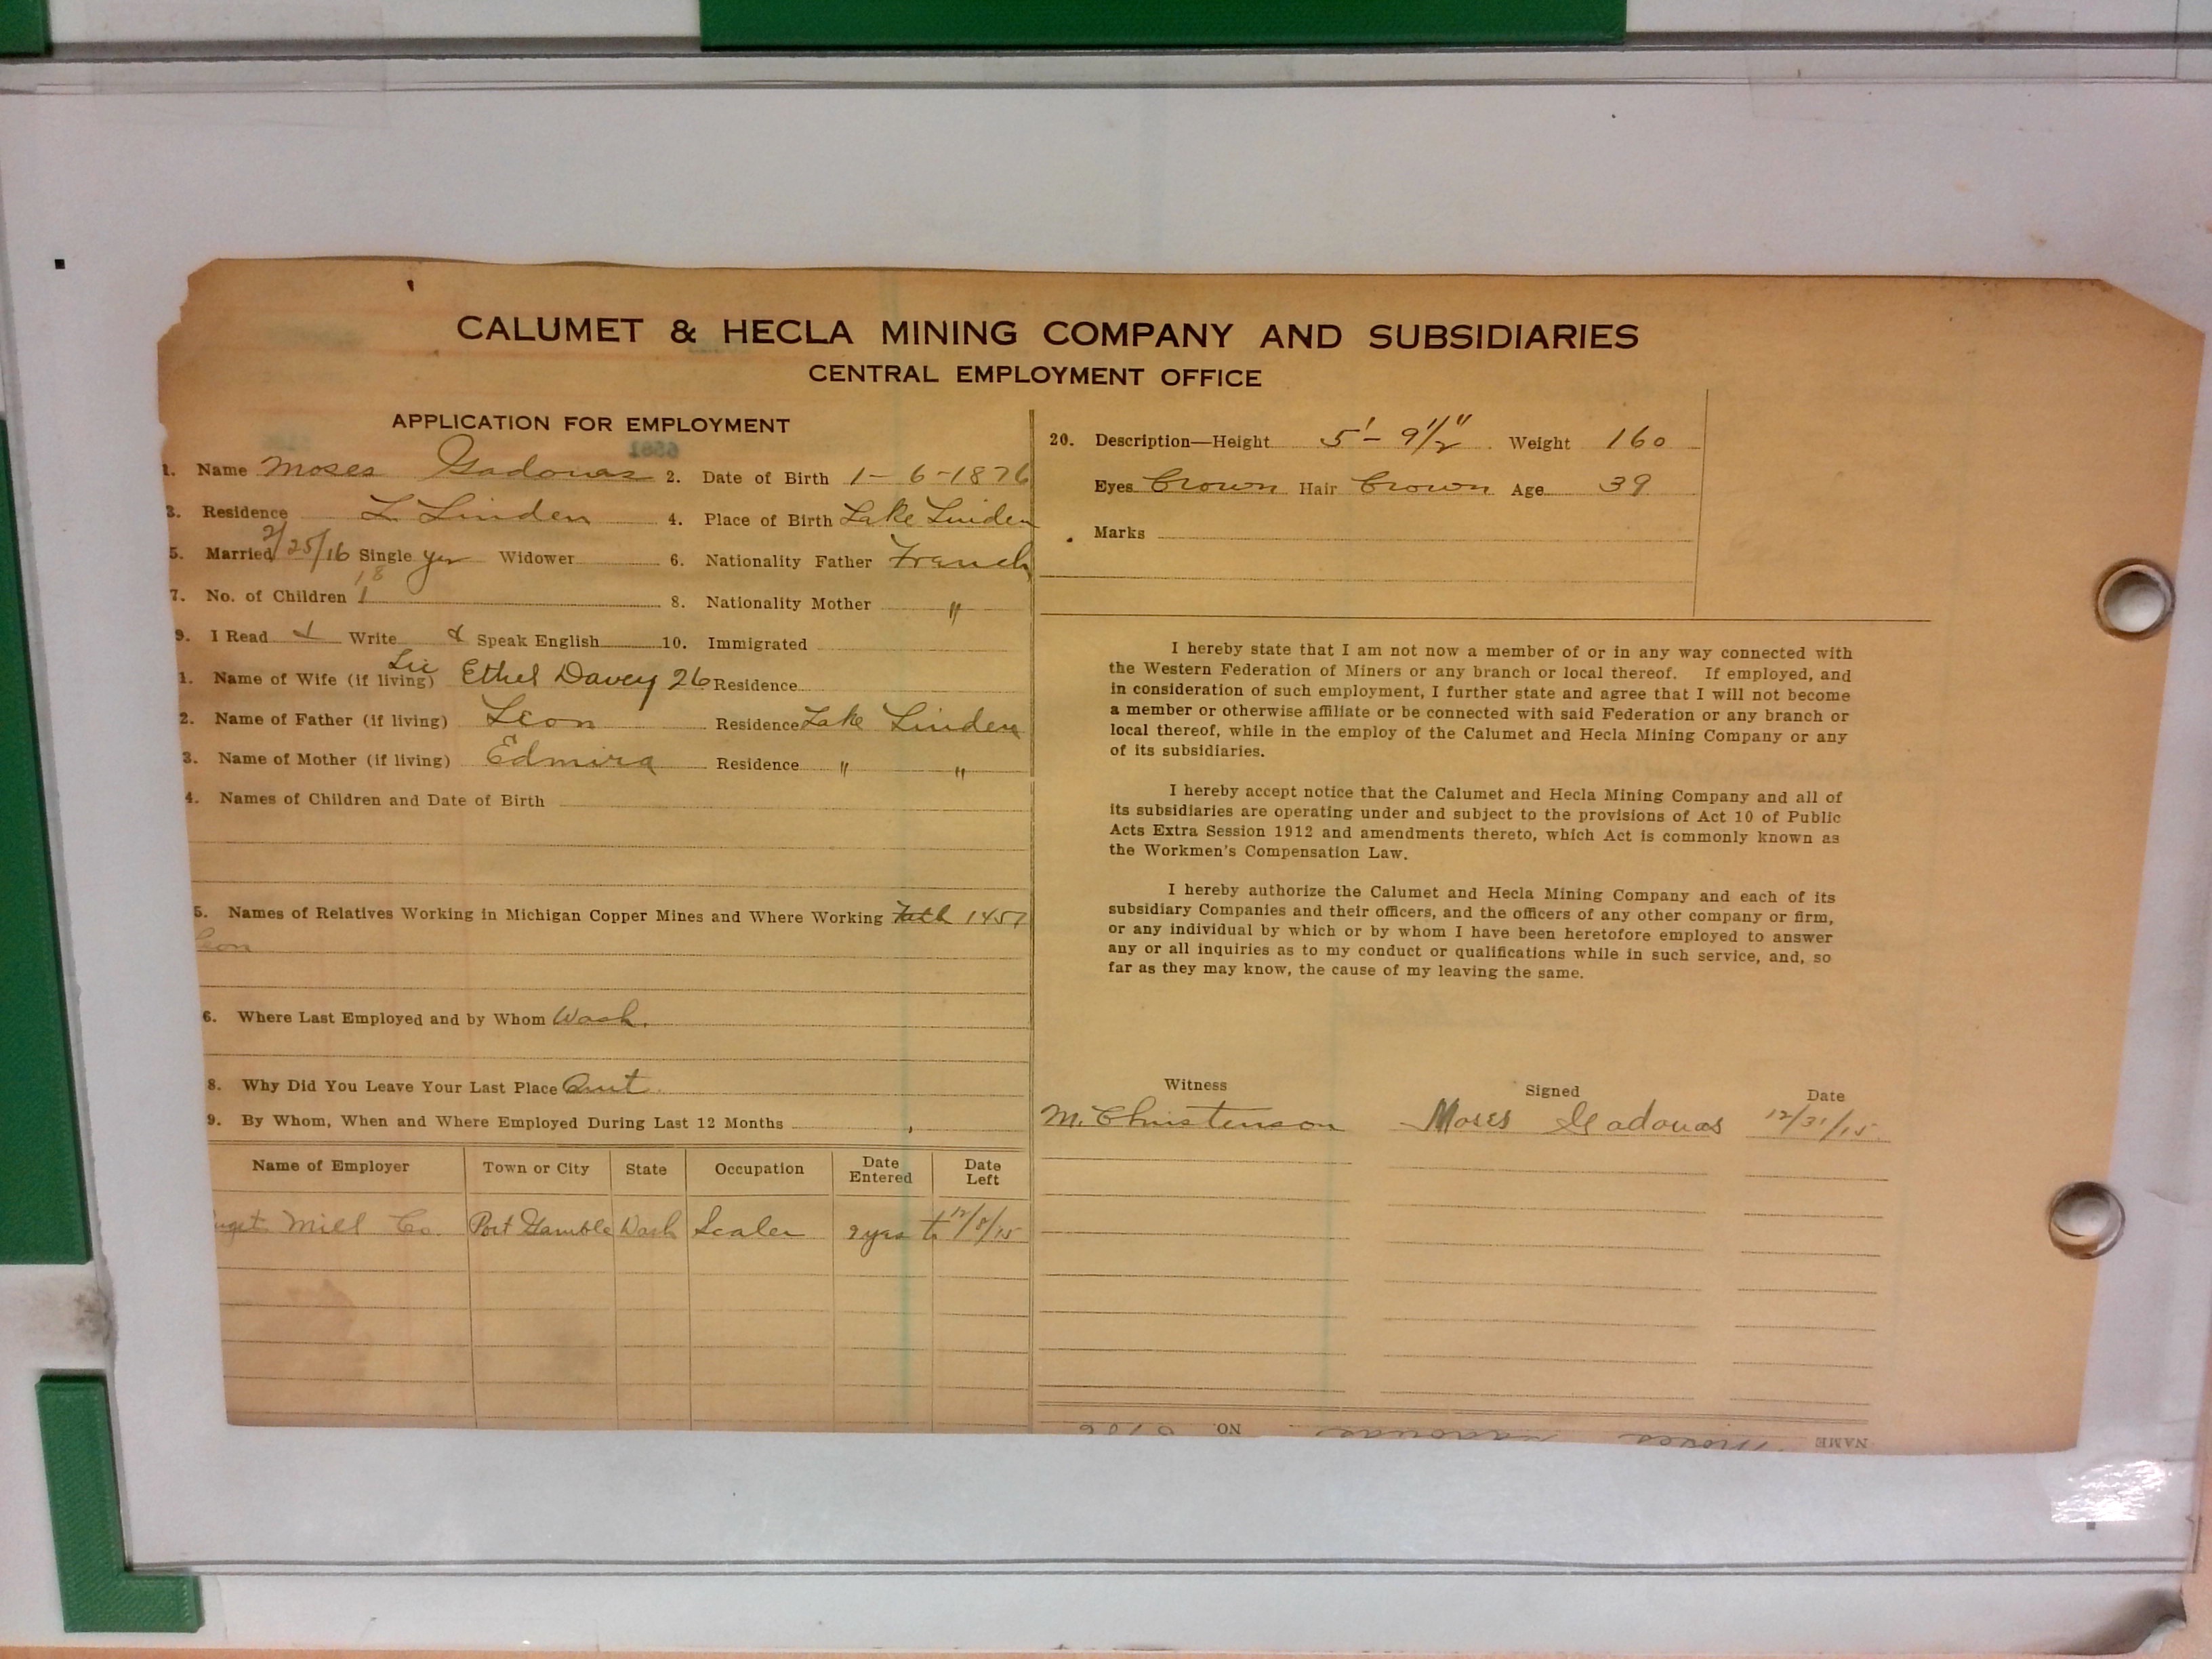 CALUMET & HECLA MINING COMPANY AND SUBSIDIARIES
CENTRAL EMPLOYMENT OFFICE
APPLICATION FOR EMPLOYMENT
1. Name Moses Gadouas 2. Date of Birth 1-6-1876
3. Residence L. Linden 4. Place of Birth Lake Linden
5. Married 2/25/16 Single yes Widower 6. Nationality Father French
7. No. of Children 1 8. Nationality Mother "
9. I Read & Write & Speak English 10. Immigrated
1. Name of Wife (if living) Ethel Davey 26 Residence
2. Name of Father (if living) Leon Residence Lake Linden
3. Name of Mother (if living) Edmira Residence " "
4. Names of Children and Date of Birth
5. Names of Relatives Working in Michigan Copper Mines and Where Working Fath 1457
Leon
6. Where Last Employed and by Whom Wash.
8. Why Did You Leave Your Last Place Quit
9. By Whom, When and Where Employed During Last 12 Months
Name of Employer Town or City State Occupation Date Entered Date Left
uget Mill Co. Port Gamble Wash Scaler 9 yrs to 12/8/15
20. Description—Height 5'-9 1/2" Weight 160
Eyes Brown Hair Brown Age 39
Marks
I hereby state that I am not now a member of or in any way connected with
the Western Federation of Miners or any branch or local thereof. If employed, and
in consideration of such employment, I further state and agree that I will not become
a member or otherwise affiliate or be connected with said Federation or any branch or
local thereof, while in the employ of the Calumet and Hecla Mining Company or any
of its subsidiaries.
I hereby accept notice that the Calumet and Hecla Mining Company and all of
its subsidiaries are operating under and subject to the provisions of Act 10 of Public
Acts Extra Session 1912 and amendments thereto, which Act is commonly known as
the Workmen's Compensation Law.
I hereby authorize the Calumet and Hecla Mining Company and each of its
subsidiary Companies and their officers, and the officers of any other company or firm,
or any individual by which or by whom I have been heretofore employed to answer
any or all inquiries as to my conduct or qualifications while in such service, and, so
far as they may know, the cause of my leaving the same.
Witness Signed Date
M. Christenson Moses Gadouas 12/31/15
NAME Moses Gadouas NO.